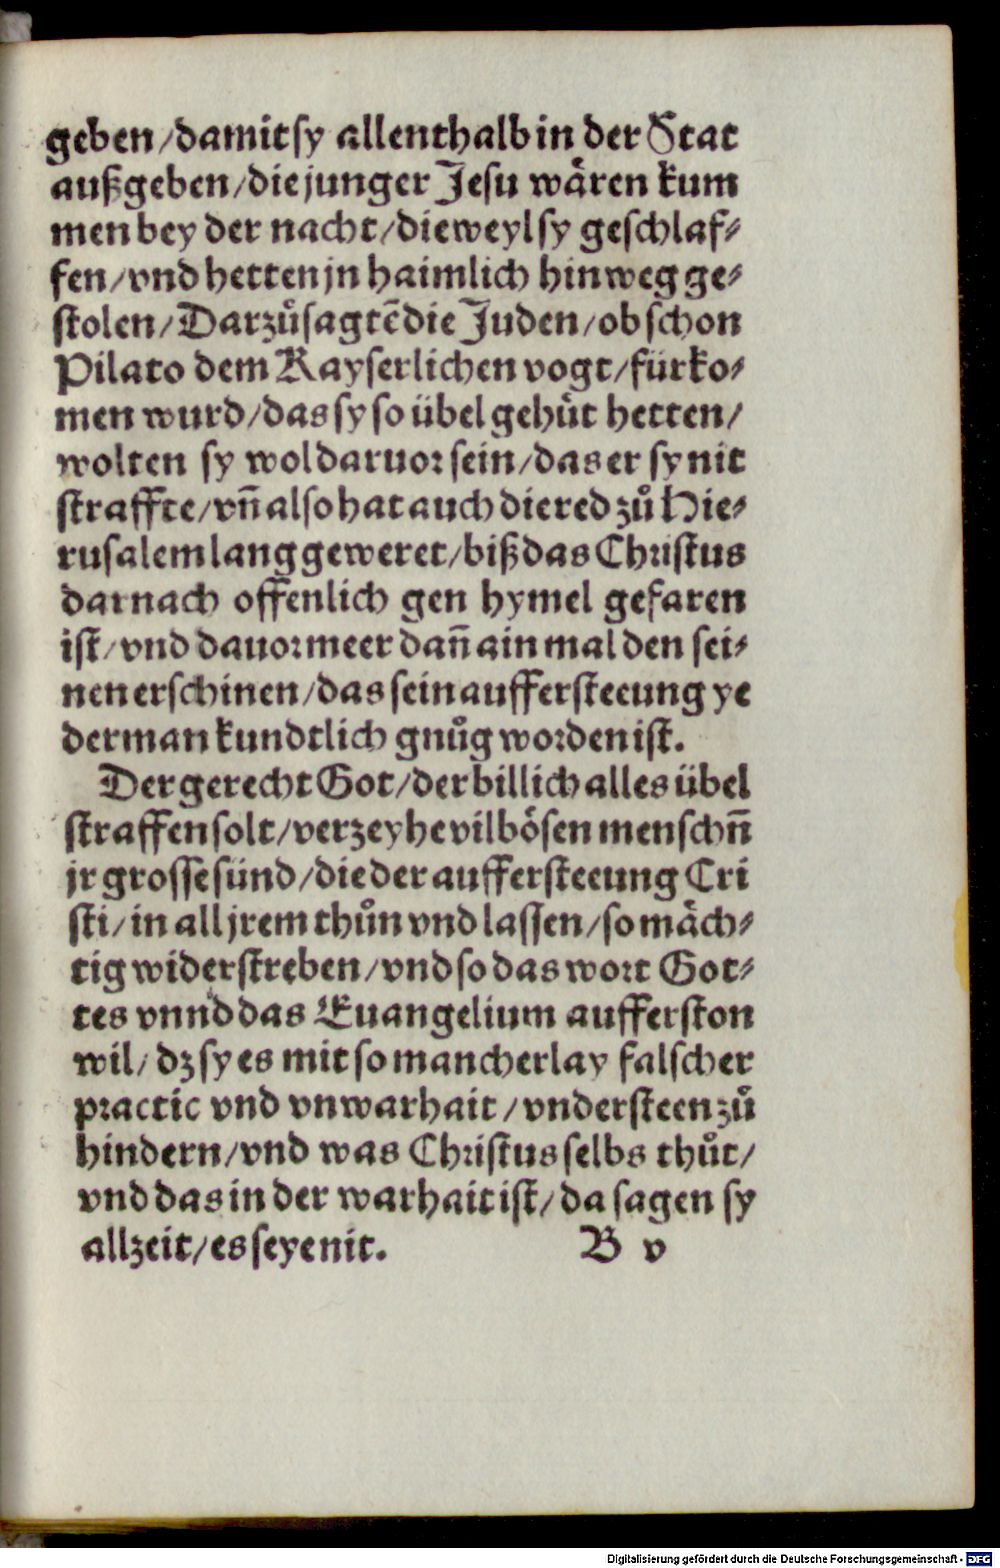 geben/damit sy allenthalb in der Stat
außgeben/die junger Jesu wåren kum
men bey der nacht/dieweyl sy geschlaf⸗
fen/vnd hetten jn haimlich hinweg ge⸗
stolen/Darzů sagtẽ die Juden/ob schon
Pilato dem Kayserlichen vogt/fürko⸗
men wurd/das sy so übel gehůt hetten/
wolten sy wol daruor sein/das er sy nit
straffte/vñ also hat auch die red zů Hie⸗
rusalem lang geweret/biß das Christus
darnach offenlich gen hymel gefaren
ist/vnd dauor meer dañ ain mal den sei⸗
nen erschinen/das sein auffersteeung ye
derman kundtlich gnůg worden ist.
Der gerecht Got/der billich alles übel
straffen solt/verzeyhe vil bösen menschñ
jr grosse sünd/die der auffersteeung Cri
sti/in all jrem thůn vnd lassen/so måch⸗
tig widerstreben/vnd so das wort Got⸗
tes vnnd das Euangelium aufferston
wil/dz sy es mit so mancherlay falscher
practic vnd vnwarhait/vndersteen zů
hindern/vnd was Christus selbs thůt/
vnd das in der warhait ist/da sagen sy
allzeit/es seye nit. B v
Digitalisierung gefördert durch die Deutsche Forschungsgemeinschaft - DFG